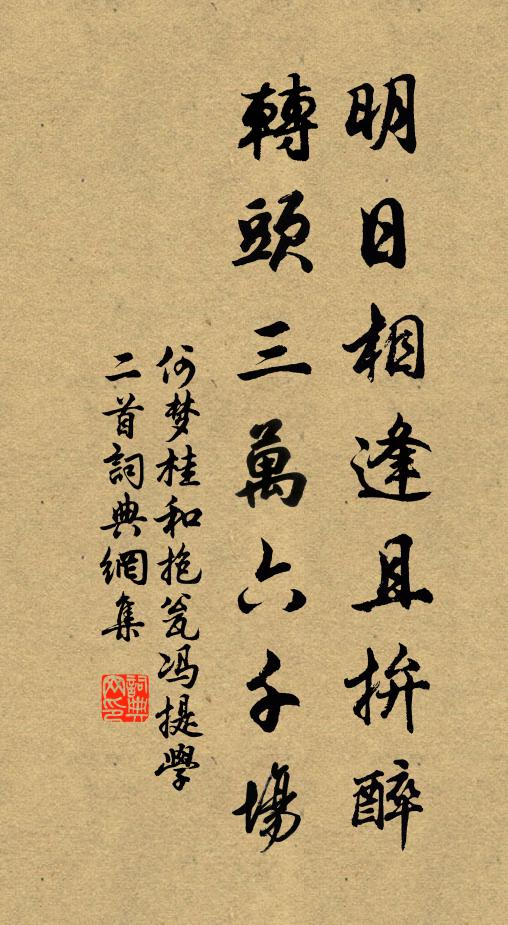 明日相逢且拚醉
轉頭三萬六千場
何梦桂和抱瓮冯提學
二首詞典網集
詞典網印